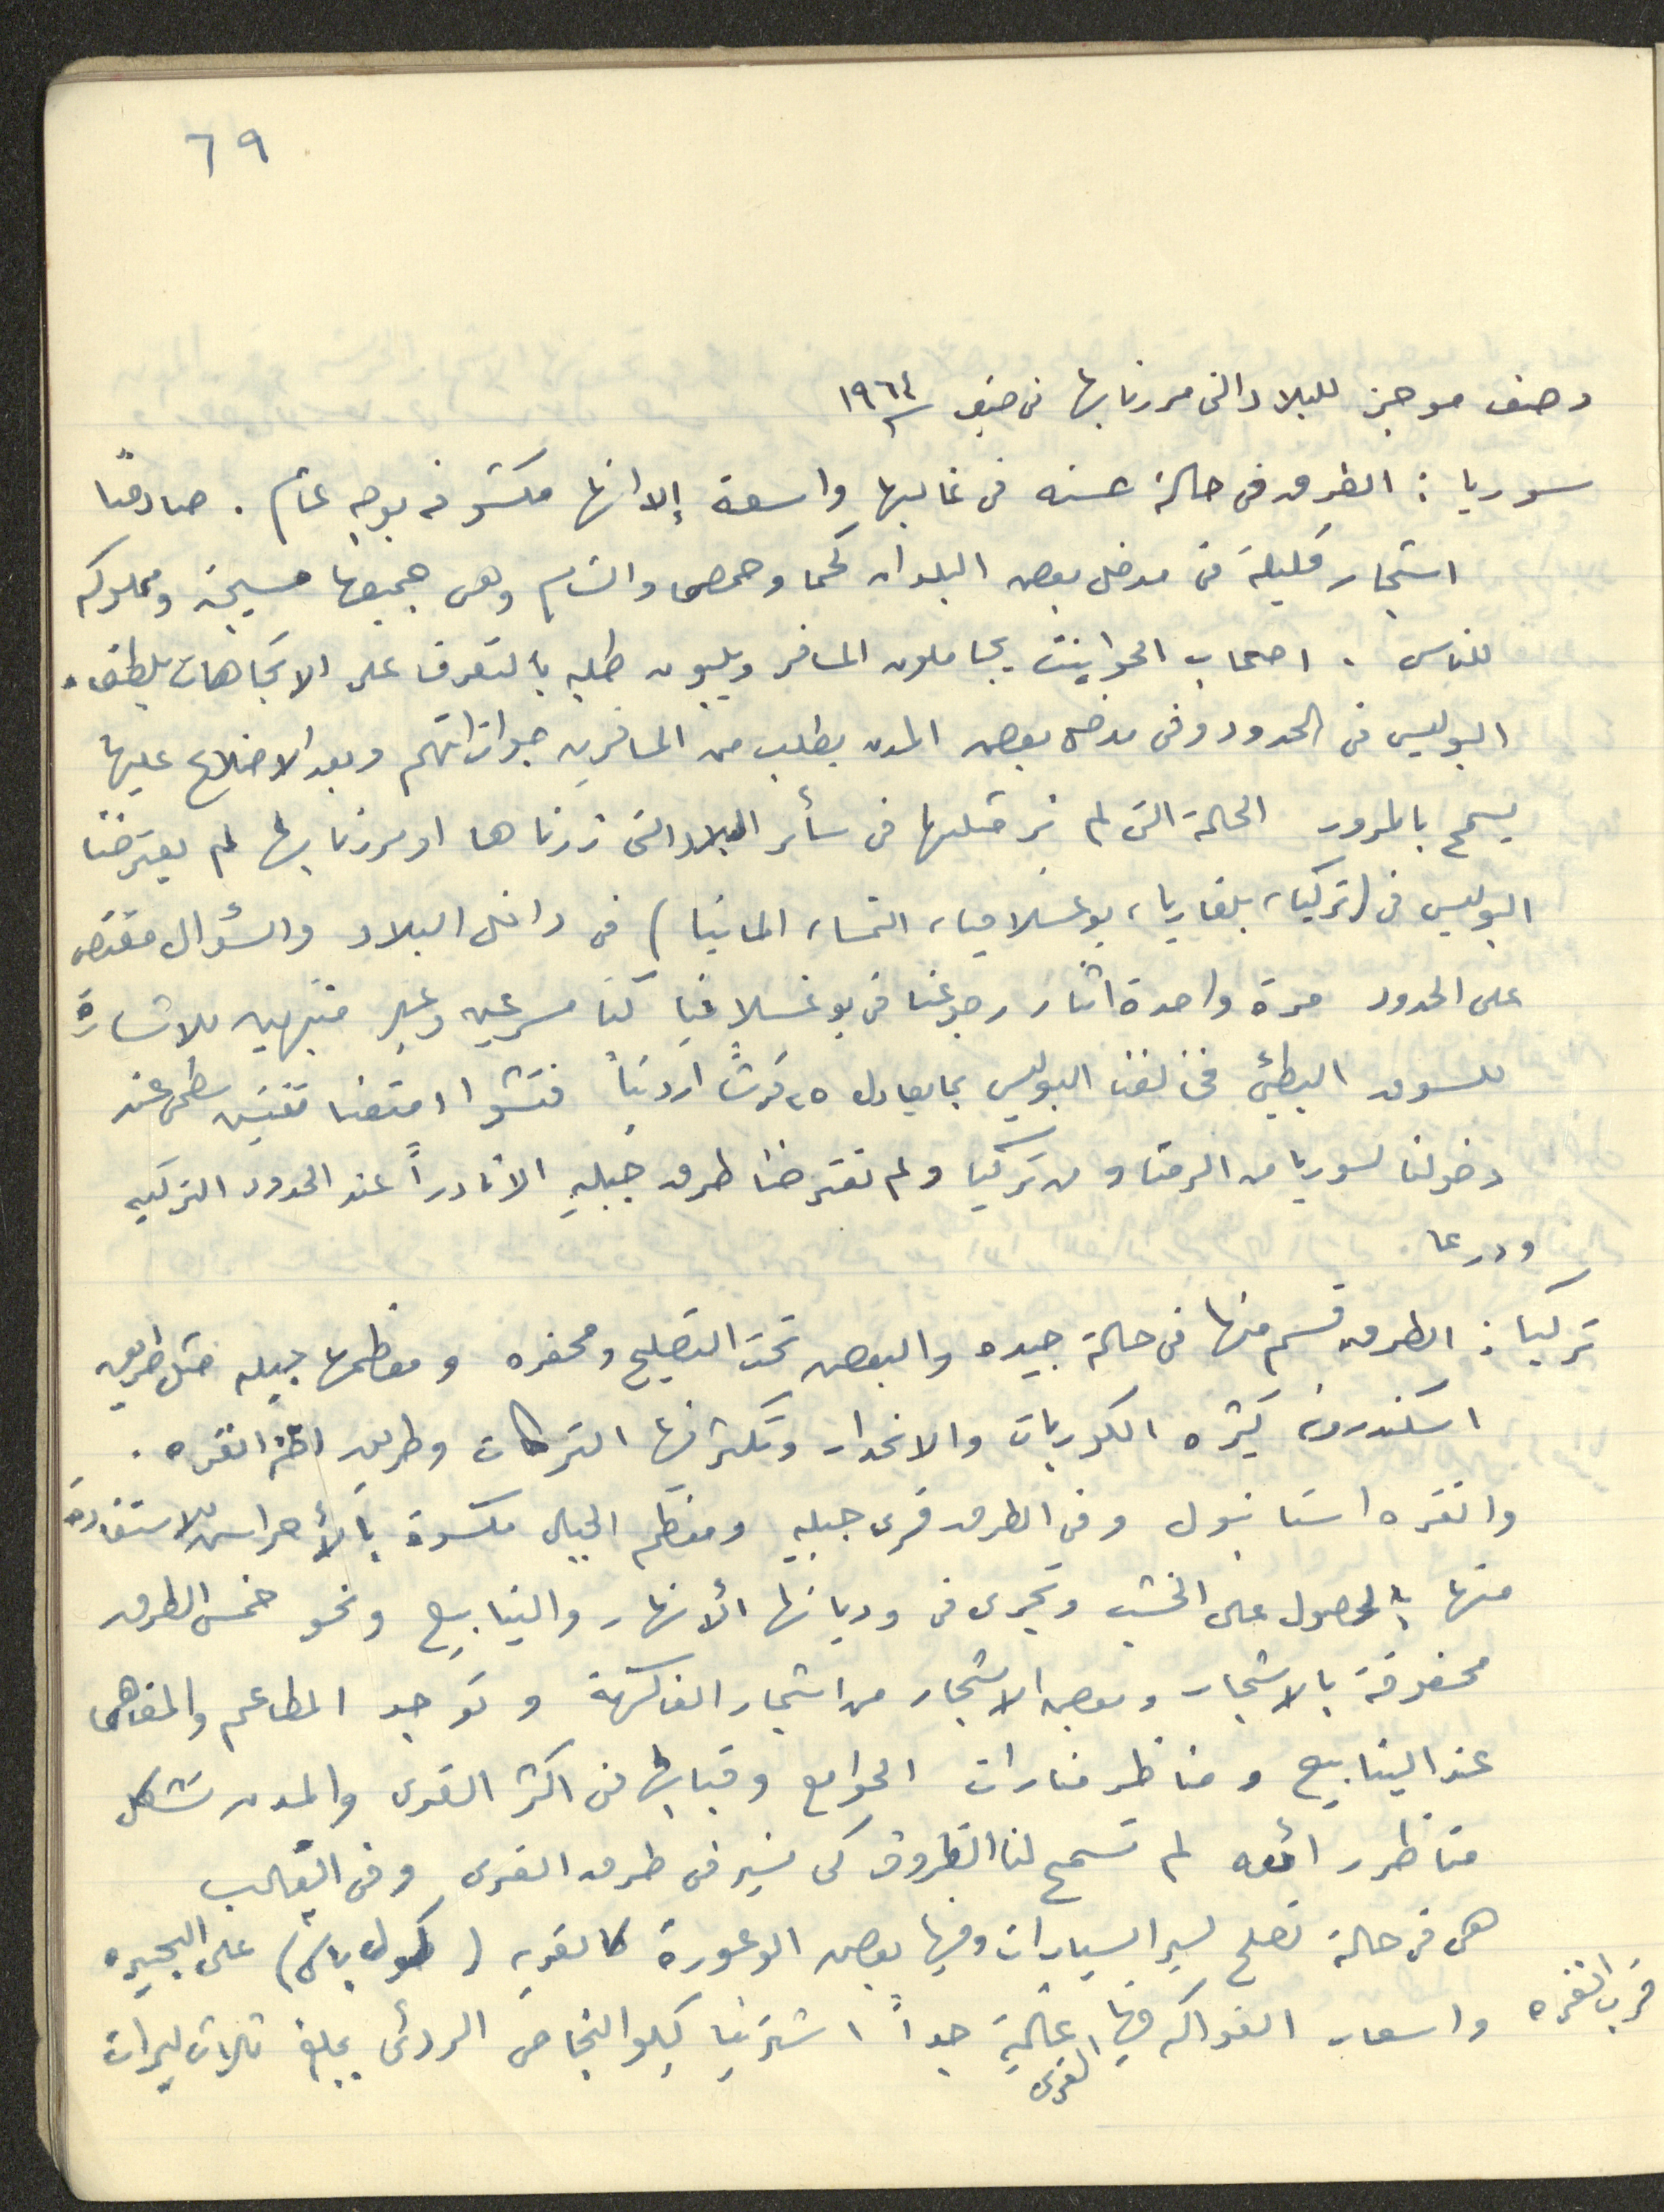 ٦٩
وصف موجز للبلاد التي مررنا بها في صيف سنة ١٩٦٤
سوريا : الطرق في حالة حسنه في غالبها واسعة إلا انها مكشوفه بوجهٍ عام . صادفنا
اشجار قليلة في مدخل بعض البلدان كحما وحمص والشام وهي جميعها مسيجة ومملوكه
للناس . اصحاب الحوانيت يجاملون المسافر ويلبون طلبه بالتعرف على الاتجاهات بلطف .
البوليس في الحدود وفي مدخل بعض المدن يطلب من المسافرين جوازاتهم وبعد الاضلاع عليها
يسمح بالمرور الحالة التي لم نر مثلها في سائر البلاد التي زرناها او مررنا بها لم يعترضنا
البوليس في (تركيا، بلغاريا، يوغسلافيا، النمسا، المانيا) في داخل البلاد والسؤال مقتصر
على الحدود مرة واحدة اثناء رجوعنا في يوغسلافيا كنا مسرعين وغير منتبهين للاشارة
للسوق البطيئ فخالفنا البوليس بما يعادل ٢٥ قرشاً اردنياً فتشوا امتعنا تفتيش سطحي عند
دخولنا لسوريا من الرمثا و من تركيا ولم تعترضنا طرق جبليه الا نادراً عند الحدود التركيه
ودرعا
تركيا : الطرق قسم منها في حالة جيده والبعض تحت التصليح ومحفره ومعظمها جبليه مثل طريق
اسكندرونه كثيره الكوربات والانحدار وتكثر فيها التركات وطريق اطنه انقره .
وانقره استانبول وفي الطرق قرى جبليه ومعظم الجبال مكسوة بالأحراس للاستفادة
منها بالحصول على الخشب وتجري في وديانها الأنهار والينابيع ونحو خمس الطرق
محفوفة بالاشجار وبعض الاشجار من اشجار الفاكهة و توجد المطاعم والمقاهي
عند الينابيع و مناظر منارات الجوامع وقبابها في اكثر القرى والمدن تشكل
مناظر رائعه لم تسمح لنا الظروف كي نسير في طرق القرى وفي الغالب
هي في حالة تصلح لسير السيارات وفيها بعض الوعورة كالقريه (كول باشي) على البحيره
قرب انقره واسعار الفواكه فيها القرى عالية جداً اشترينا كيلو النجاص الردئ بمبلغ ثلاث ليرات